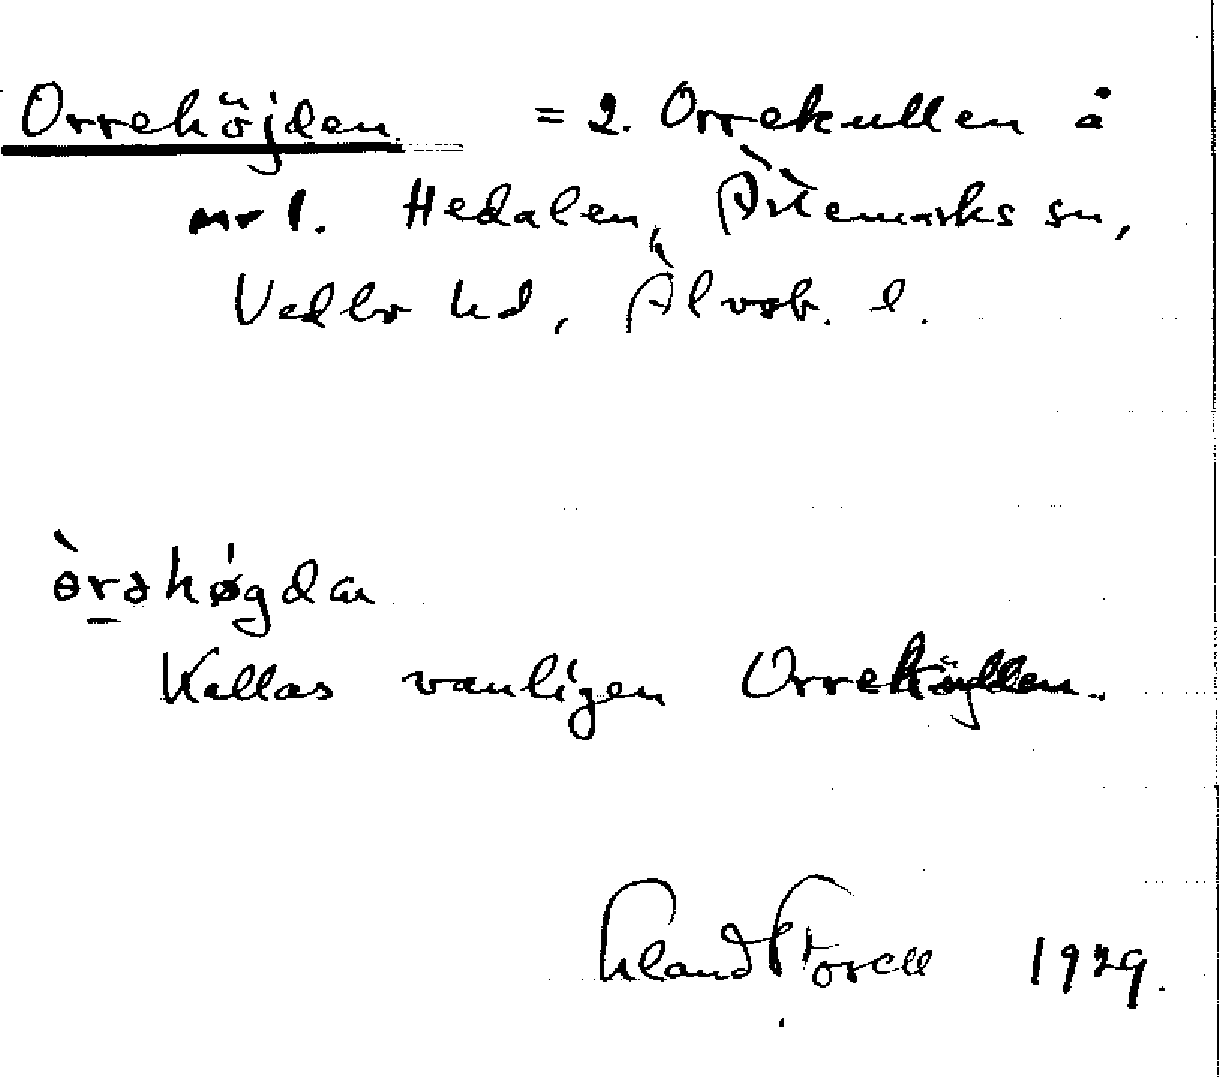 Orrehöjden = 2. Orrekullen å
nr 1. Hedalen, Ärtemarks sn,
Vedbo hd, Älvsb. l.
ɵ̀rəhø̍gdan
Kallas vanligen Orrekullen.
Torell 1929.